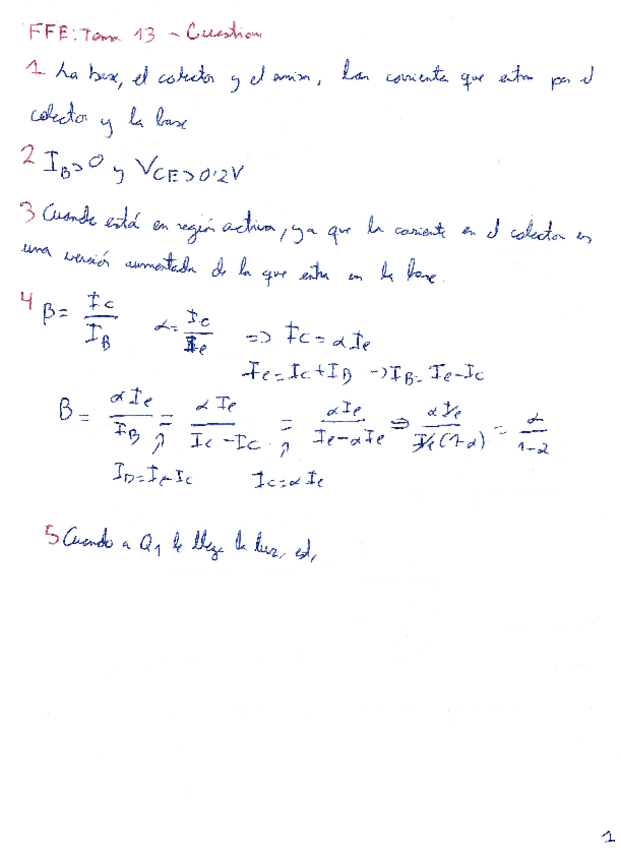 FFE: Tema 13 - Cuestiones
1 La base, el colector y el emisor, las corrientes que entran por el
colector y la base
2 I_B>0 y V_CE>0'2V
3 Cuando está en región activa, ya que la corriente en el colector es
una versión aumentada de la que entra en la base.
4 β = Ic/I_B α = Ic/Ie => Ic = αIe
Ie = Ic + I_B -> I_B = Ie - Ic
β = αIe/I_B = αIe/(Ie - Ic) = αIe/(Ie - αIe) => αIe/(Ie(1-α)) = α/(1-α)
I_B = Ie - Ic Ic = αIe
5 Cuando a Q1 le llega la luz, est,
1